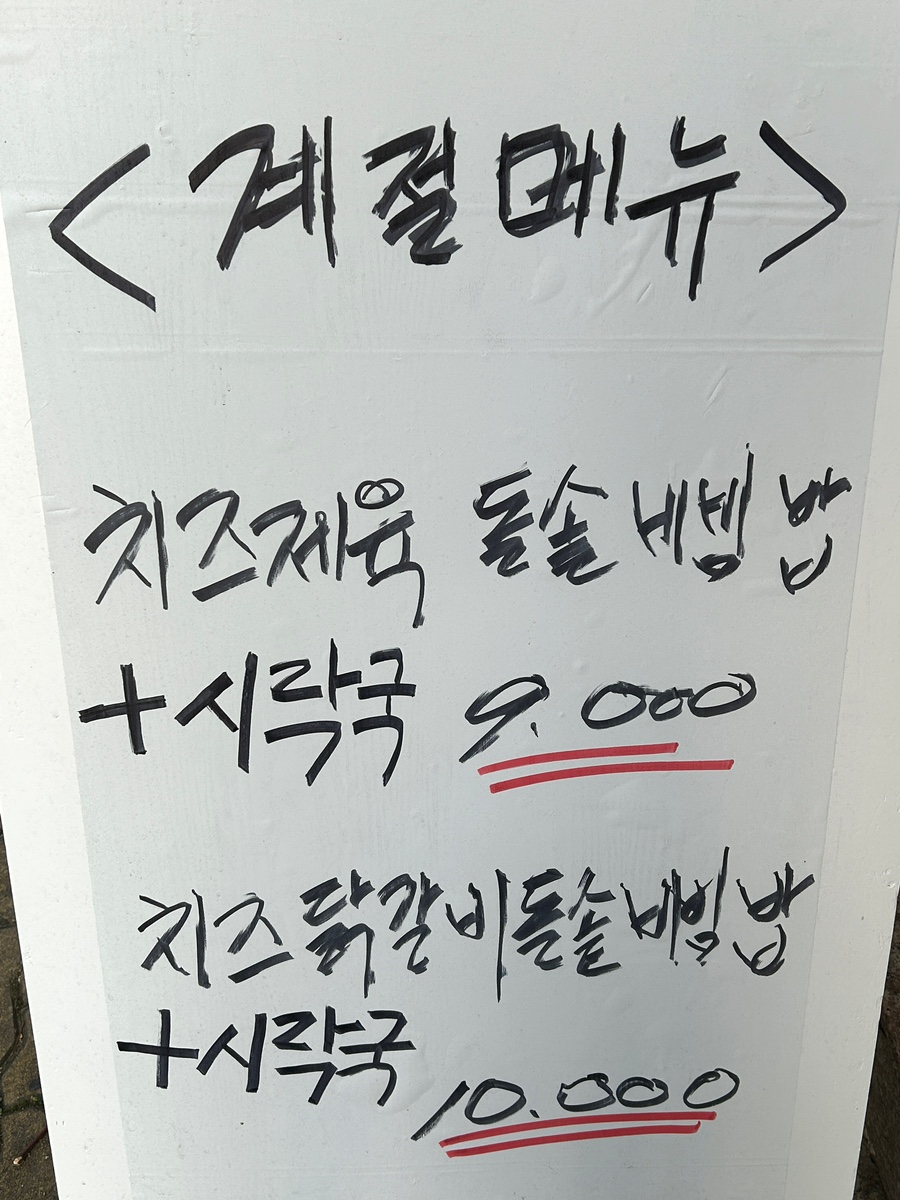 <계절메뉴>
치즈제육 돌솥비빔밥
+시락국 9.000
치즈닭갈비돌솥비빔밥
+시락국
10.000